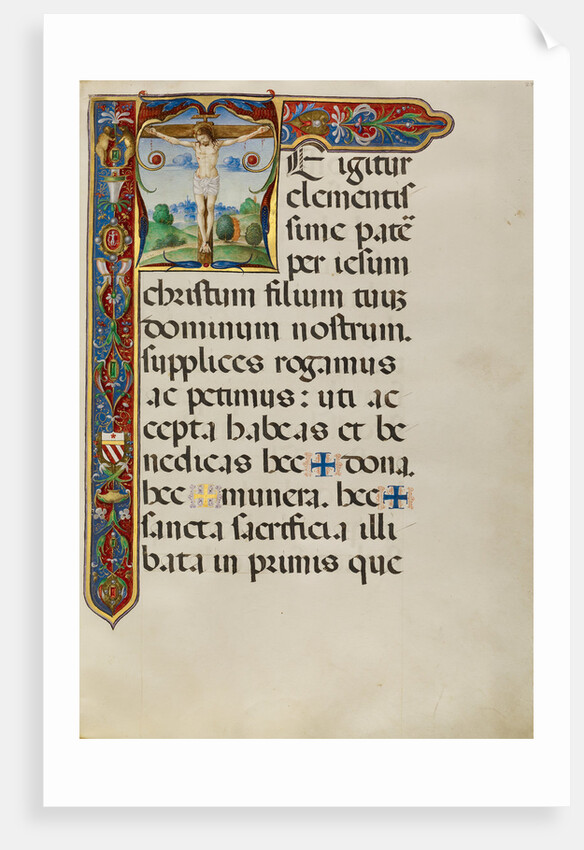 TE igitur
clementis
sime pate᷒
per iesum
christum filium tuuȝ
dominum nostrum.
supplices rogamus
ac petimus: uti ac
cepta habeas et be
nedicas hec ✠ dona.
hec ✠ munera. hec ✠
sancta sacrificia illi
bata in primis que